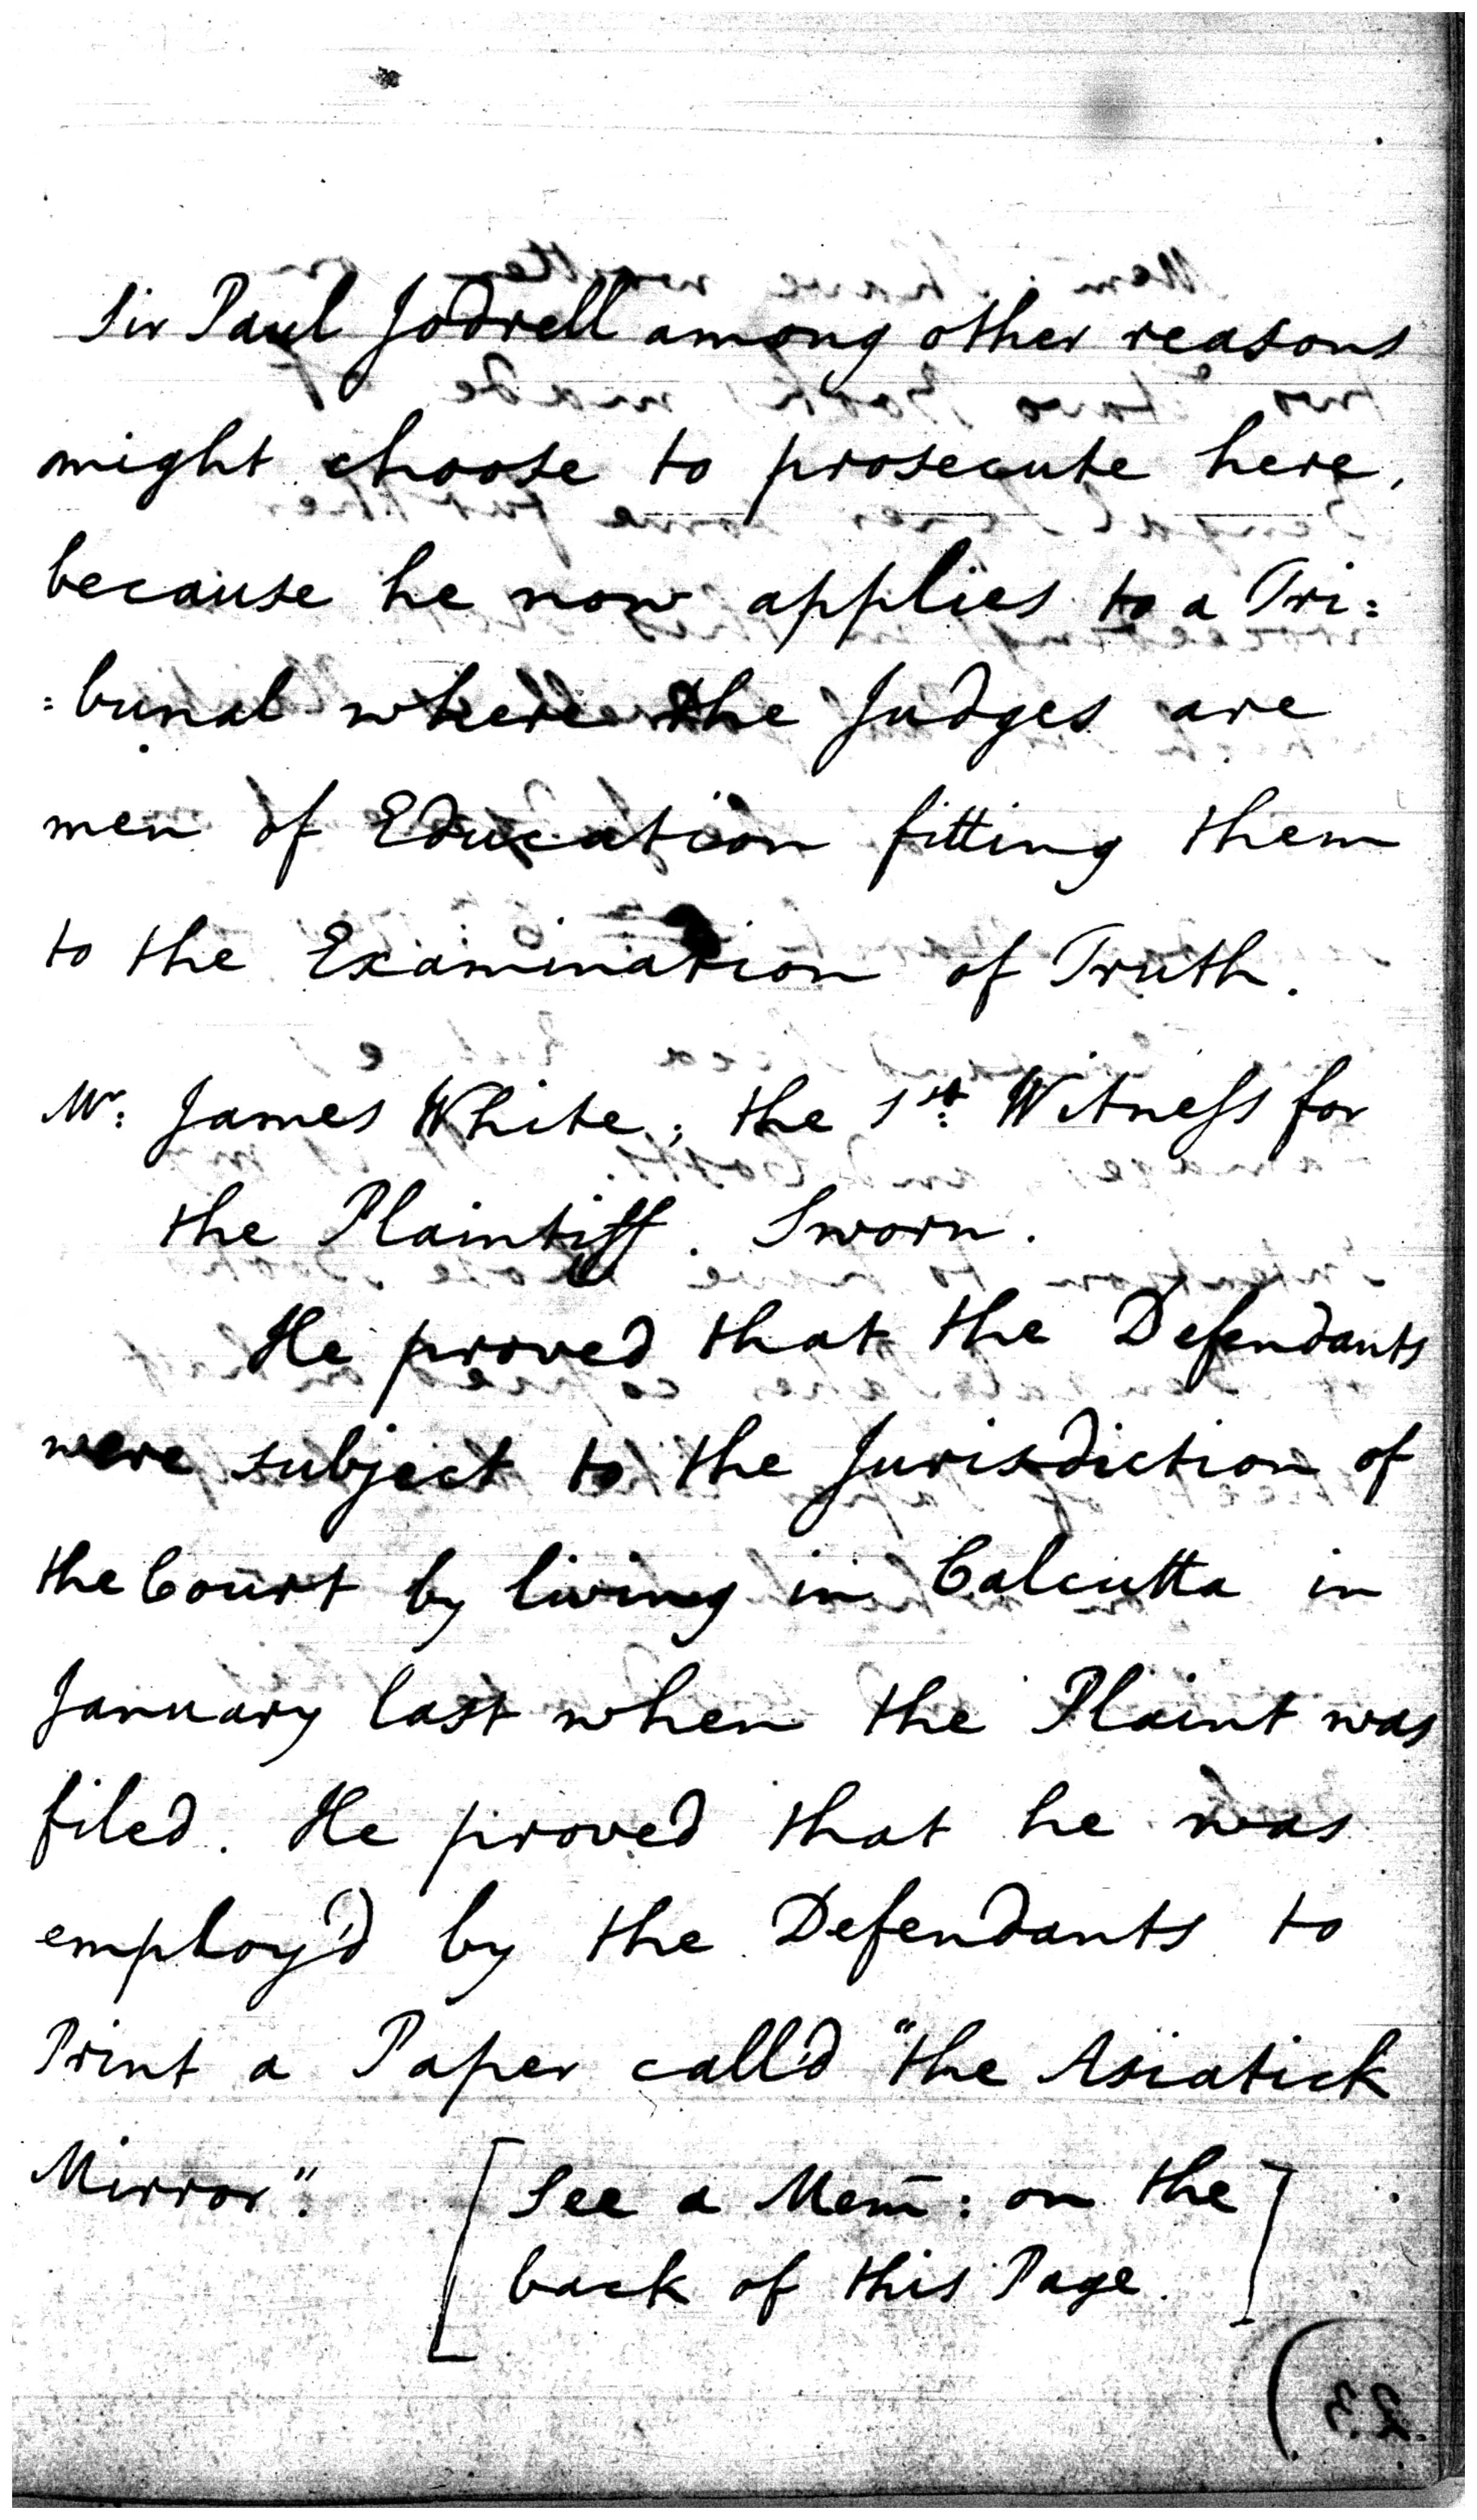 Sir Paul Jodrell among other reasons
might choose to prosecute here,
because he now applies to a Tri:
:bunal where the Judges are
men of Education fitting them
to the Examination of Truth.
Mr: James White, the 1st: Witness for
the Plaintiff. Sworn.
He proved that the Defendants
were subject to the Jurisdiction of
the Court by living in Calcutta in
January last when the Plaint was
filed. He proved that he was
employ'd by the Defendants to
Print a Paper call'd "the Asiatick
Mirror". [See a Mem̄: on the
back of this Page.]